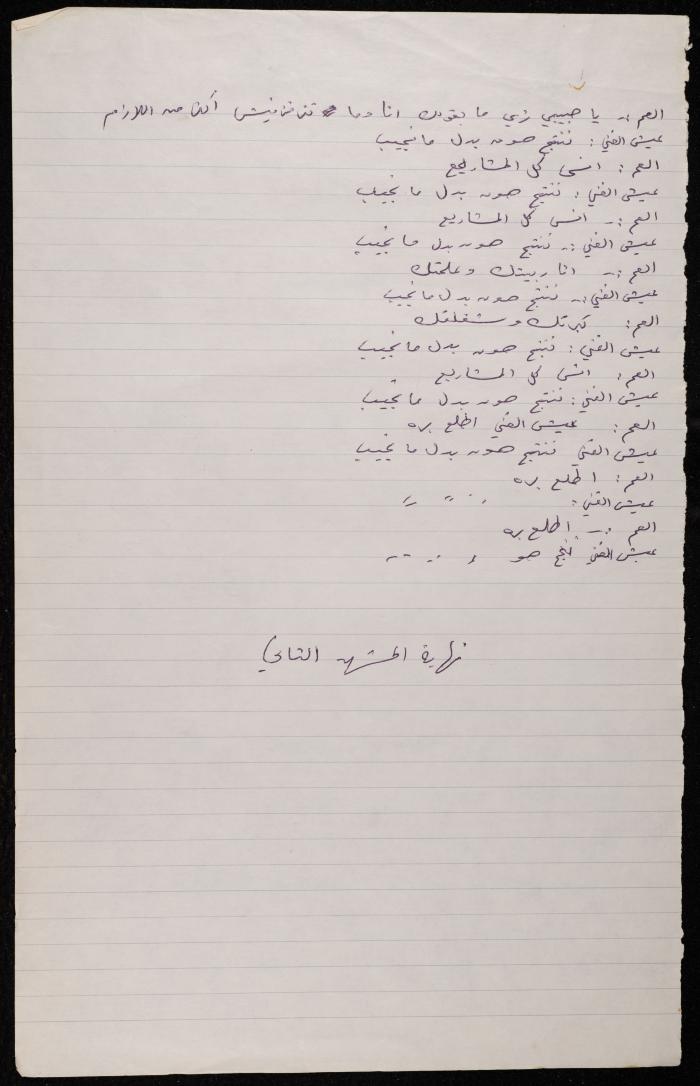 العم :- يا حبيبي زي ما بقولك انا وما تناقشنيش أكتر من اللازم
عيش الغني : ننتج هون بدل ما نجيب
العم : انسى كل المشاريع
عيش الغني : ننتج هون بدل ما نجيب
العم :- انسى كل المشاريع
عيش الغني :- ننتج هون بدل ما نجيب
العم :- انا ربيتك وعلمتك
عيش الغني :- ننتج هون بدل ما نجيب
العم : كبرتك وشغلتك
عيش الغني : ننتج هون بدل ما نجيب
العم : انسى كل المشاريع
عيش الغني : ننتج هون بدل ما نجيب
العم : عيش الغني اطلع بره
عيش الغني ننتج هون بدل ما نجيب
العم : اطلع بره
عيش الغني : 〃 〃 〃
العم :- اطلع بره
عيش الغني ننتج هو
نهاية المشهد الثاني